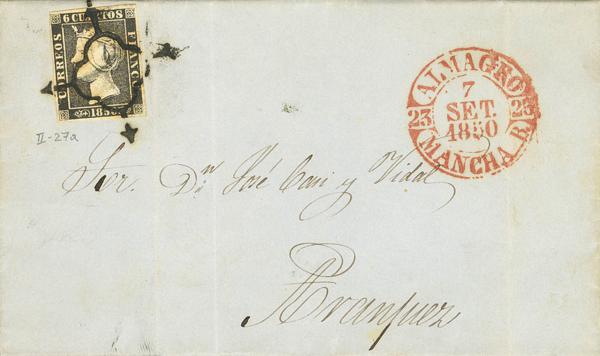 6 CUARTOS
CORREOS
FRANCO
1850
II-27a
ALMAGRO
7
SET.
1850
23 23
MANCHA B.
Sor. Dn. José Cari y Vidal
Aranjuez